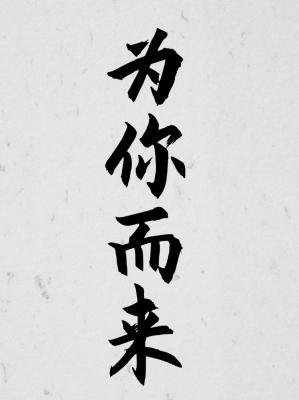 为你而来